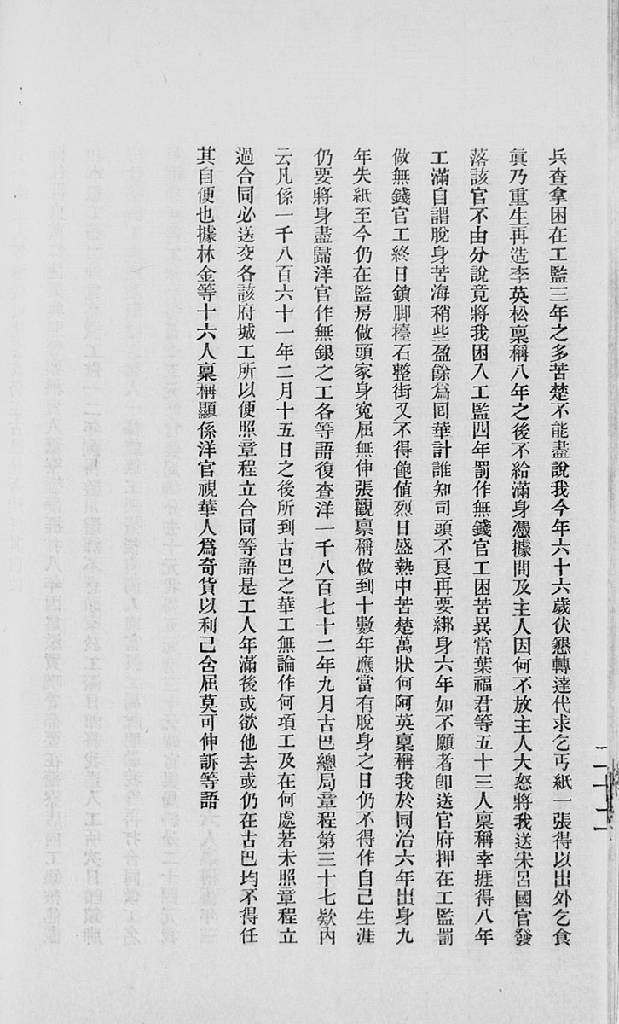 兵查拿困在工監三年之多苦楚不能盡說我今年六十六歲伏懇轉達代求乞丐紙一張得以出外乞食
眞乃重生再造李英松稟稱八年之後不給滿身憑據問及主人因何不放主人大怒將我送宋呂國官發
落該官不由分說竟將我困入工監四年罰作無錢官工困苦異常葉福君等五十三人稟稱幸捱得八年
工滿自謂脫身苦海稍些盈餘爲囘華計誰知司頭不良再要綁身六年如不願者卽送官府押在工監罰
做無錢官工終日鎖脚擡石整街又不得飽値烈日盛熱中苦楚萬狀何阿英稟稱我於同治六年出身九
年失紙至今仍在監房做頭家身寃屈無伸張觀稟稱做到十數年應當有脫身之日仍不得作自己生涯
仍要將身盡歸洋官作無銀之工各等語復查洋一千八百七十二年九月古巴總局章程第三十七欵內
云凡係一千八百六十一年二月十五日之後所到古巴之華工無論作何項工及在何處若未照章程立
過合同必送交各該府城工所以便照章程立合同等語是工人年滿後或欲他去或仍在古巴均不得任
其自便也據林金等十六人稟稱顯係洋官視華人爲奇貨以利己含屈莫可伸訴等語
二十二